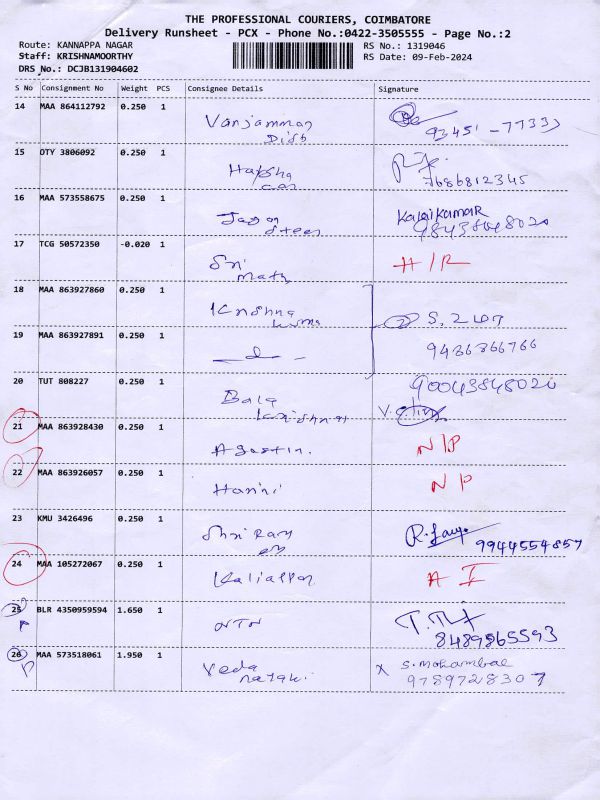 THE PROFESSIONAL COURIERS, COIMBATORE
Delivery Runsheet - PCX - Phone No.:0422-3505555 - Page No.:2
Route: KANNAPPA NAGAR
Staff: KRISHNAMOORTHY
DRS No.: DCJB131904602
RS No.: 1319046
RS Date: 09-Feb-2024
S No Consignment No Weight PCS Consignee Details Signature
14 MAA 864112792 0.250 1
Vanjamman
93451-77333
15 OTY 3806092 0.250 1
Harsha
7686812345
16 MAA 573558675 0.250 1
Jagan
Steel
Kalaikumar
17 TCG 50572350 -0.020 1
Sri
H/R
18 MAA 863927860 0.250 1
Krishna
19 MAA 863927891 0.250 1
9486866766
20 TUT 808227 0.250 1
Bala
Krishnan
21 MAA 863928430 0.250 1
Agastin.
N/P
22 MAA 863926057 0.250 1
Harini
N P
23 KMU 3426496 0.250 1
Shri Ram
9944554857
24 MAA 105272067 0.250 1
Kaliappan
A I
25 BLR 4350959594 1.650 1
NTN
8489865593
26 MAA 573518061 1.950 1
Veda
X S. Mohambal
9789728307